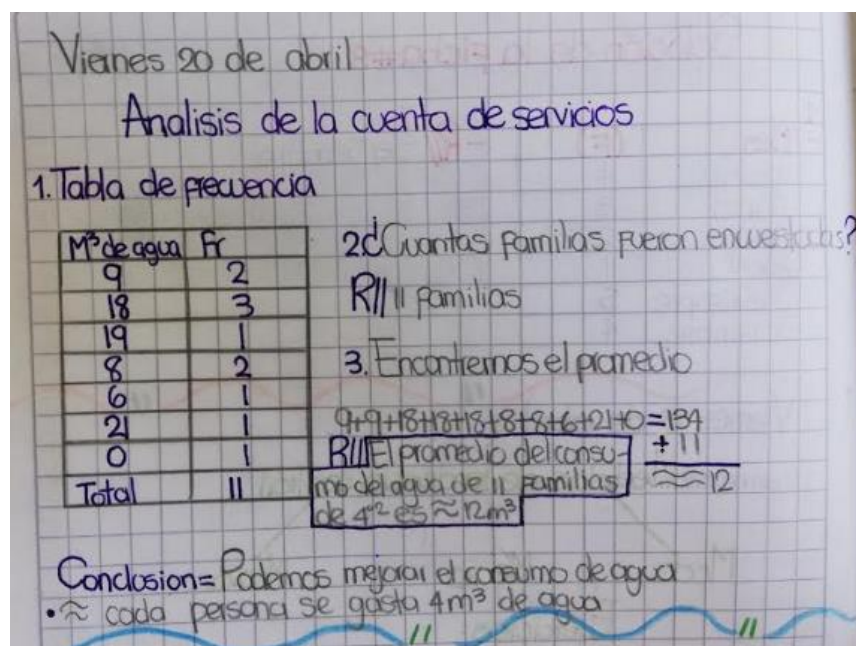 Viernes 20 de abril
Analisis de la cuenta de servicios
1. Tabla de frecuencia
M³ de agua Fr
9 2
18 3
19 1
8 2
6 1
21 1
0 1
Total 11
2 ¿Cuantas familias fueron encuestadas?
R// 11 familias
3. Encontremos el promedio
9+9+18+18+18+8+8+6+21+0=134
÷ 11
≈ 12
R// El promedio del consu-
mo del agua de 11 familias
de 4-2 es ≈ 12m³
Conclusion= Podemos mejorar el consumo de agua
• ≈ cada persona se gasta 4m³ de agua